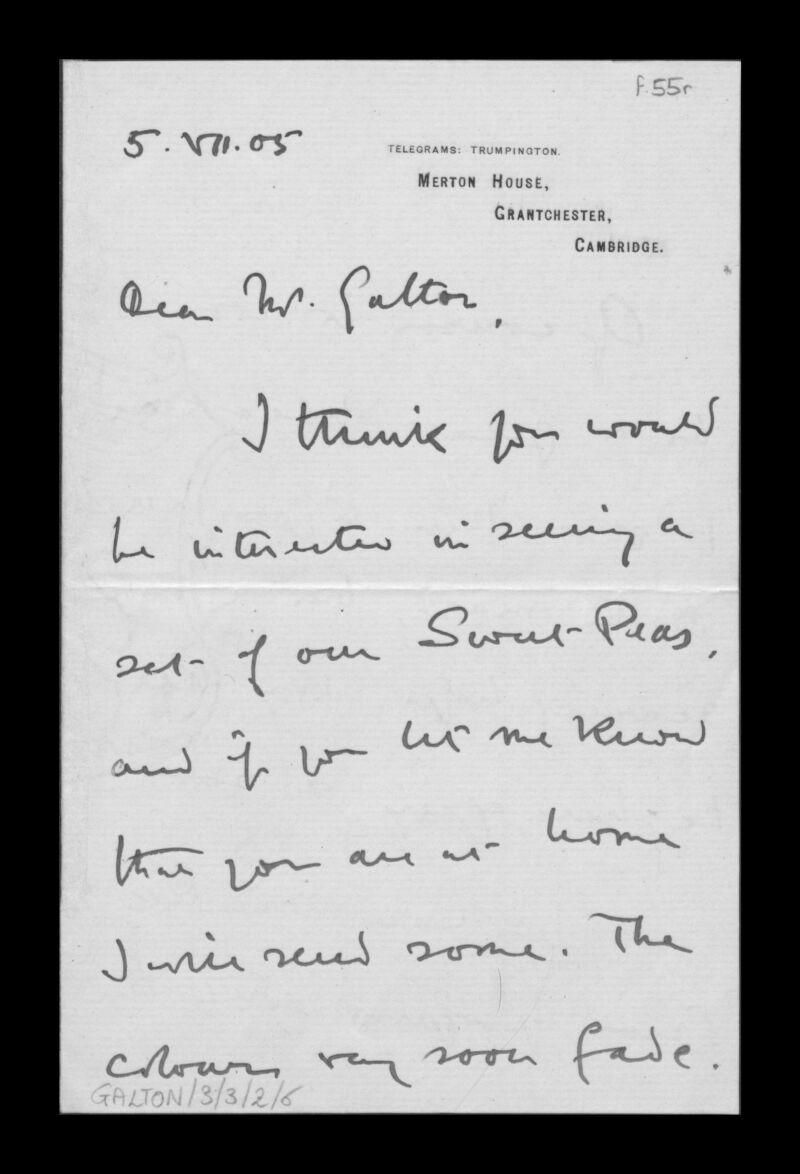 f.55r
5.VII.05
TELEGRAMS: TRUMPINGTON.
MERTON HOUSE,
GRANTCHESTER,
CAMBRIDGE.
Dear Mr. Galton,
I think you would
be interested in seeing a
set of our Sweet-Peas,
and if you let me know
that you are at home
I will send some. The
colours very soon fade.
GALTON/3/3/2/6